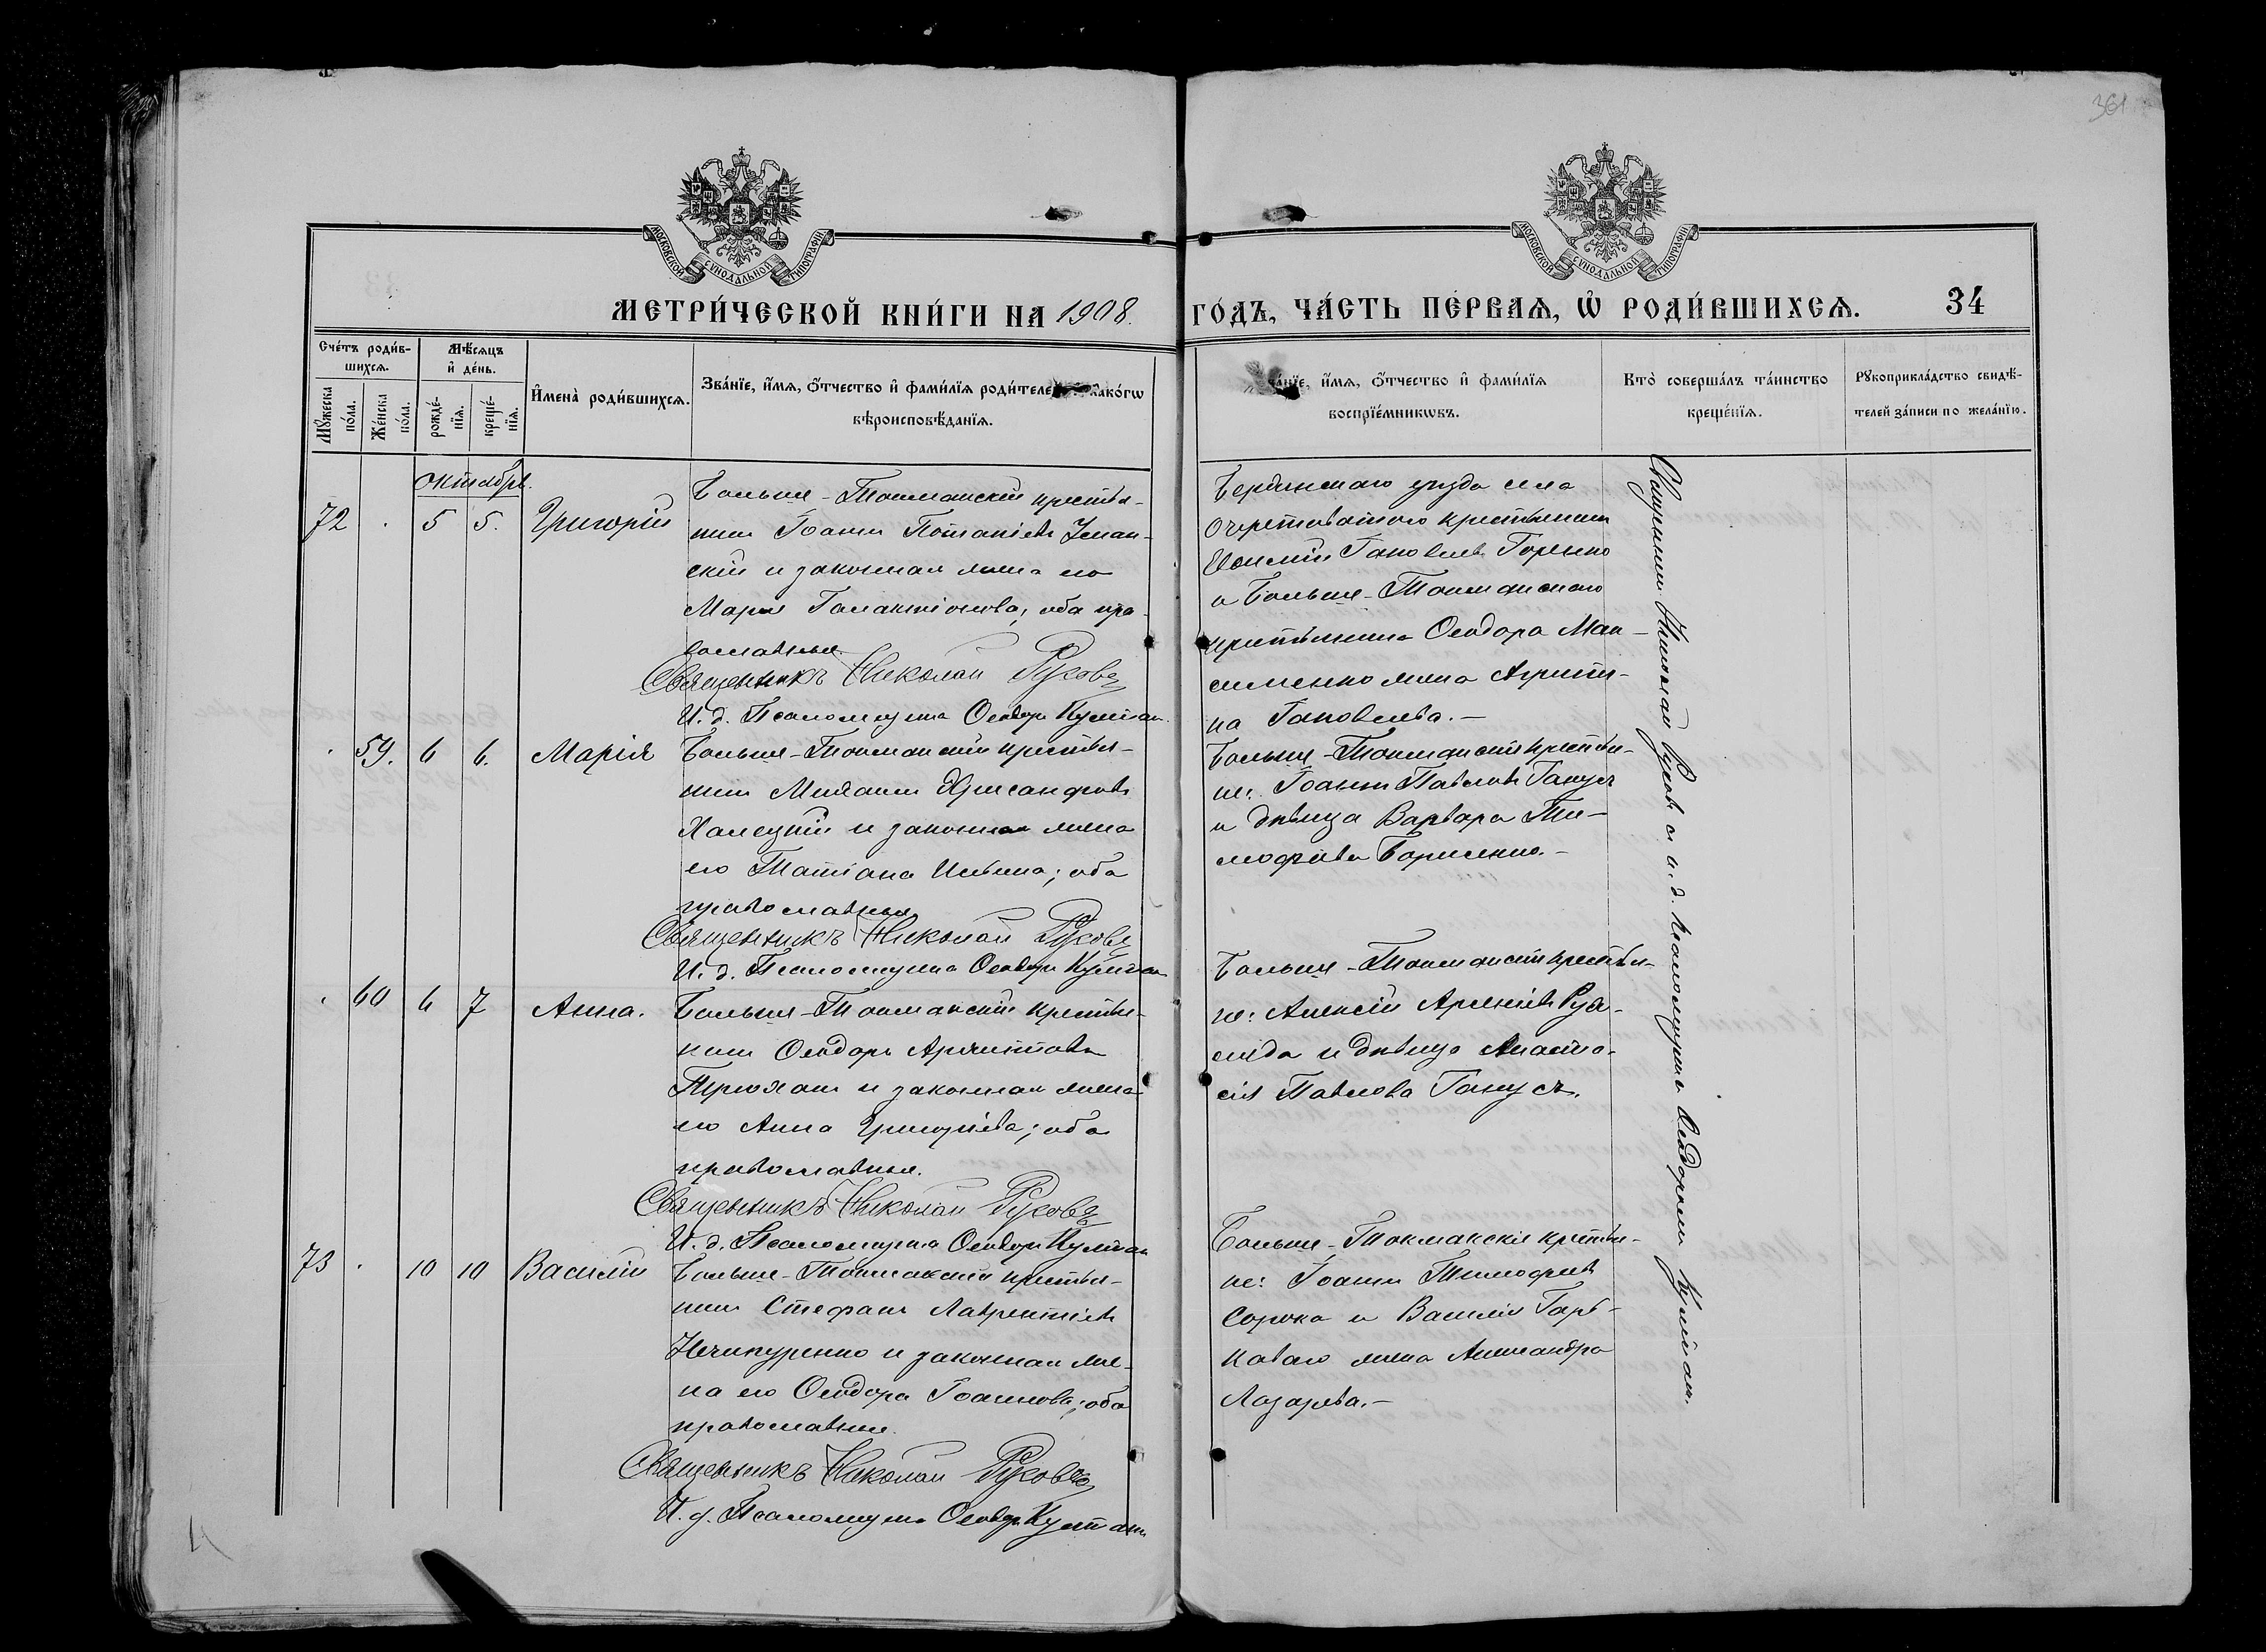 361
МОСКОВСКОЙ СѴНОДАЛЬНОЙ ТИПОГРАФІИ
МОСКОВСКОЙ СѴНОДАЛЬНОЙ ТИПОГРАФІИ
МЕТРИ́ЧЕСКОЙ КНИ́ГИ НА 1908.
ГО́ДЪ, ЧА́СТЬ ПЕ́РВАѦ, Ѡ РОДИ́ВШИХСѦ. 34
Сче́тъ роди́в-
шихсѧ.
Мꙋ́жеска
по́ла.
Же́нска
по́ла.
Мѣ́сѧцъ
и҆ де́нь.
рожде́-
нїѧ.
креще́-
нїѧ.
И҆мена̀ роди́вшихсѧ.
Зва́нїе, и҆́мѧ, ѻ҆́тчество и҆ фами́лїѧ роди́теле како́гѡ
вѣроисповѣ́данїѧ.
и҆́мѧ, ѻ҆́тчество и҆ фами́лїѧ
воспрїе́мникѡвъ.
Кто̀ соверша́лъ та́инство
креще́нїѧ.
Рꙋкоприкла́дство свидѣ́-
телей за́писи по жела́нїю.
октябрь.
72 . 5 5. Григорій
Больше-Токмакскій крестья-
нинъ Іоаннъ Потапіевъ
скій и законная жена его
Марія Галактіонова; оба пра-
вославные.
Священникъ Николай Руховъ
И. д. Псаломщика Ѳеодоръ
Бердянскаго уѣзда села
крестьянинъ
Іаковлевъ Горенко
и Больше-Токмакскаго
крестьянина Ѳеодора Мак-
сименко жена Агрипи-
на Іаковлева.-
. 59. 6 6. Марія
Больше-Токмакскій крестья-
нинъ Михаилъ Хрисанфовъ
Халецкій и законная жена
его Татіана Ильина; оба
православные
Священникъ Николай Руховъ
И. д. Псаломщика Ѳеодоръ
Больше-Токмакскіе крестья-
не: Іоаннъ Павловъ Ганусъ
и дѣвица Варвара Ти-
моѳеева Борисенко.-
. 60 6 7 Анна.
Больше-Токмакскій крестья-
нинъ Ѳеодоръ
Трюханъ и законная жена
его Анна Григоріева; оба
православные.
Священникъ Николай Руховъ
И. д. Псаломщика Ѳеодоръ
Больше-Токмакскіе крестья-
не: Алексій Арсеніевъ
и дѣвица Анаста-
сія Павлова Ганусъ.
73 . 10 10 Василій
Больше-Токмакскій крестья-
нинъ Стефанъ Лаврентіевъ
Нечипуренко и законная же-
на его Ѳеодора Іоаннова; оба
православные.
Священникъ Николай Руховъ
И. д. Псаломщика Ѳеодоръ
Больше-Токмакскіе крестья-
не: Іоаннъ Тимоѳеевъ
Сорока и Василія Горь-
коваго жена Александра
Лазарева.-
Священникъ Николай Руховъ и и. д. псаломщика Ѳеодоромъ